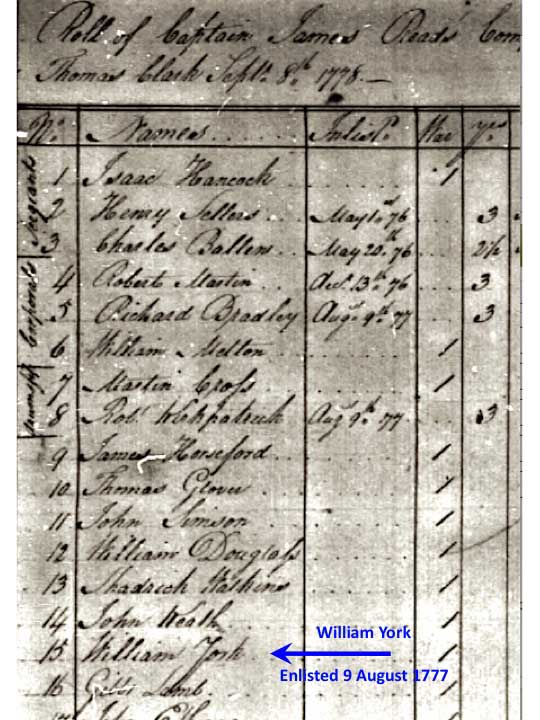 Roll of Captain James Reads Com
Thomas Clark Sept. 8th 1778.
No. Names Inlistd. War yrs
Sergeant
Corporals
1 Isaac Hancock 1
2 Henry Sellers May 1st 76 3
3 Charles Ballen May 20th 76 2½
4 Robert Martin 13th 76 3
5 Richard Bradley Augt 9th 77 3
6 William Melton 1
7 Martin Cross 1
8 Robt. Kirkpatrick Aug 9th 77 3
9 James Horseford 1
10 Thomas Glover 1
11 John Simson 1
12 William Douglass 1
13 Shadrich Watkins 1
14 John Keath 1
15 William York 1
William York
Enlisted 9 August 1777
16 Gibs Lamb 1
17 John